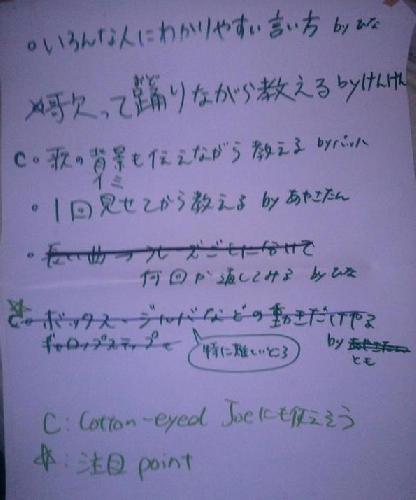 。いろんな人にわかりやすい言い方 by ひな
☆歌って踊りながら教える by けんけん
おど
C。歌の背景も伝えながら教える by
イミ
。1回見せてから教える by あやこたん
。長い曲→フレーズごとに分けて
何回か通してみる by ひな
☆
C。ボックス・ジルバなどの動きだけやる
ギャロップステップも
特に難しいところ
by あやこたん
とも
C: Cotton-eyed Joeにも使えそう
☆: 注目 point